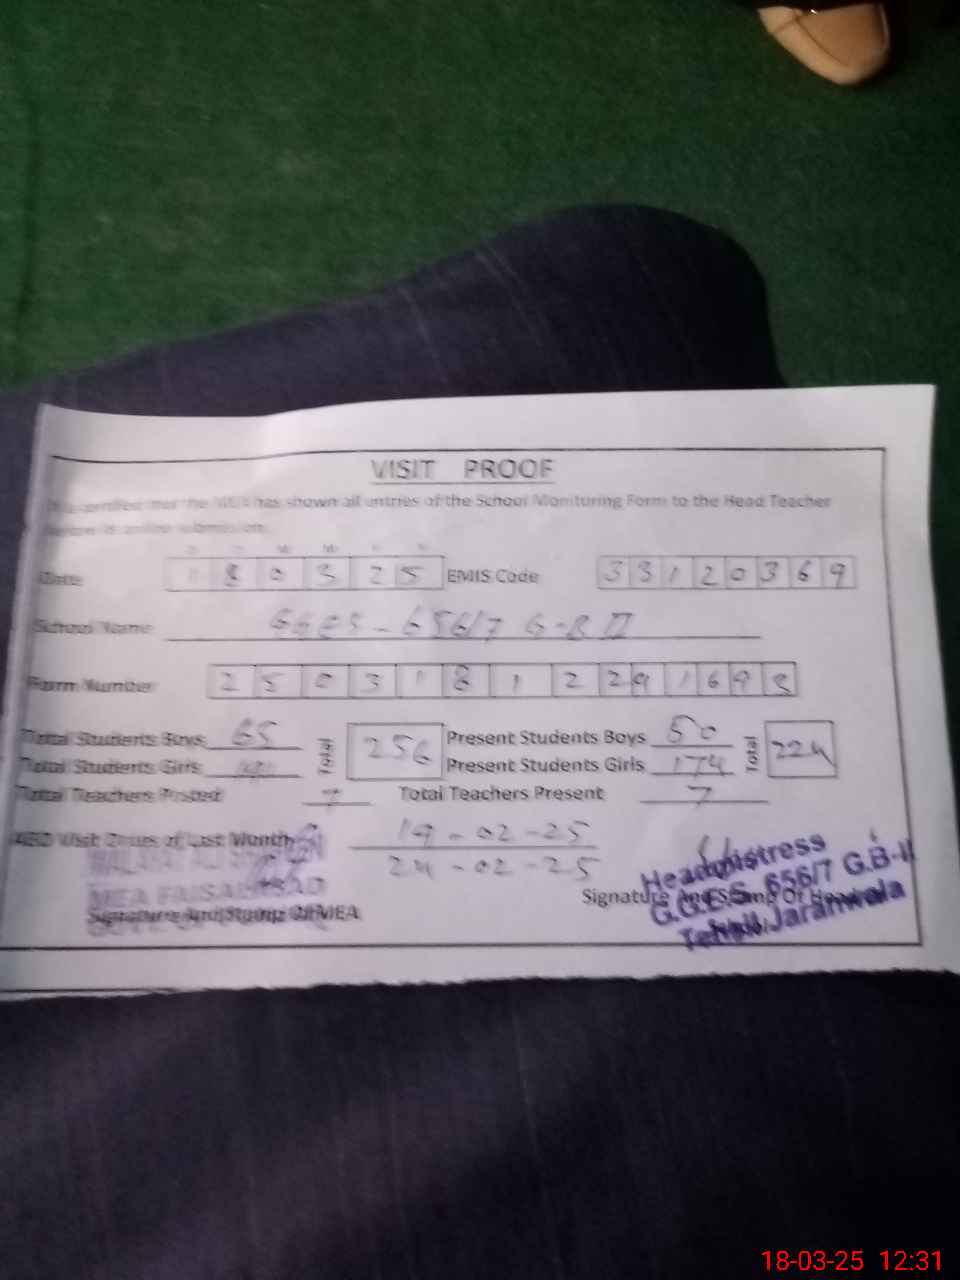 VISIT PROOF
It is certified that the MEA has shown all entries of the School Monitoring Form to the Head Teacher
before its online submission.
Date 1 8 0 3 2 5 EMIS Code 3 3 1 2 0 3 6 9
School Name GGES - 656/7 G-B II
Form Number 2 5 0 3 1 8 1 2 29 1 6 9
Total Students Boys 65 Total 256 Present Students Boys 50 Total 224
Total Students Girls Present Students Girls 174
Total Teachers Posted 7 Total Teachers Present 7
Visit of Last Month 19-02-25
24-02-25
MEA FAISALABAD
Signature And Stamp Of MEA
Signature And Stamp Of
Headmistress
G.G.E.S. 656/7 G.B-II
Tehsil Jaranwala
18-03-25 12:31